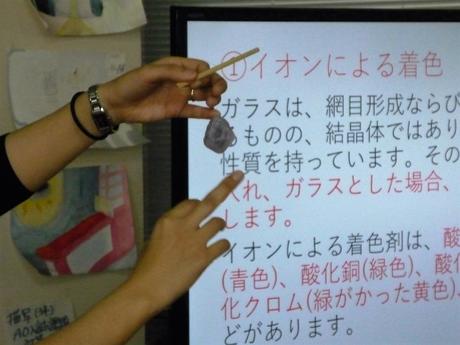 ①イオンによる着色
ガラスは、網目形成ならび
るものの、結晶体ではあり
性質を持っています。その
入れ、ガラスとした場合、
します。
イオンによる着色剤は、酸
(青色)、酸化銅(緑色)、酸
化クロム(緑がかった黄色)、
どがあります。
描写(床)